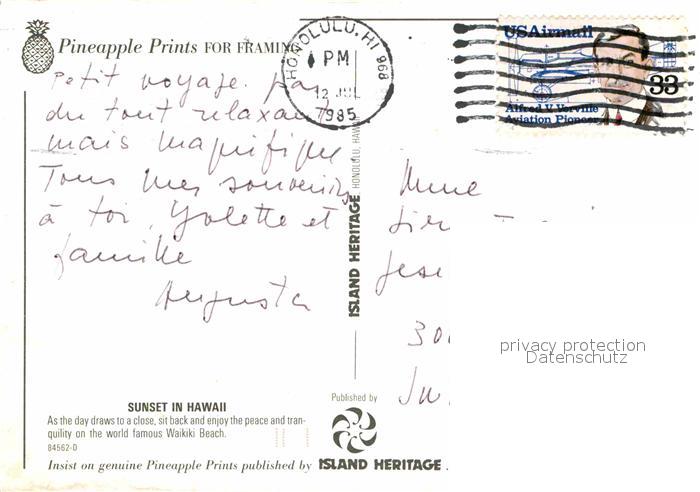 Pineapple Prints FOR FRAMING
HONOLULU, HI 968
PM
12 JUL
1985
USAirmail
33
Alfred V. Verville
Aviation Pioneer
Petit voyage pas
du tout relaxant
mais magnifique
Tous mes souvenirs
à toi, Yolette et
famille
Augusta
Mme
300
privacy protection
Datenschutz
ISLAND HERITAGE HONOLULU, HAWAII
SUNSET IN HAWAII
As the day draws to a close, sit back and enjoy the peace and tran-
quility on the world famous Waikiki Beach.
84562-D
Published by
ISLAND HERITAGE
Insist on genuine Pineapple Prints published by